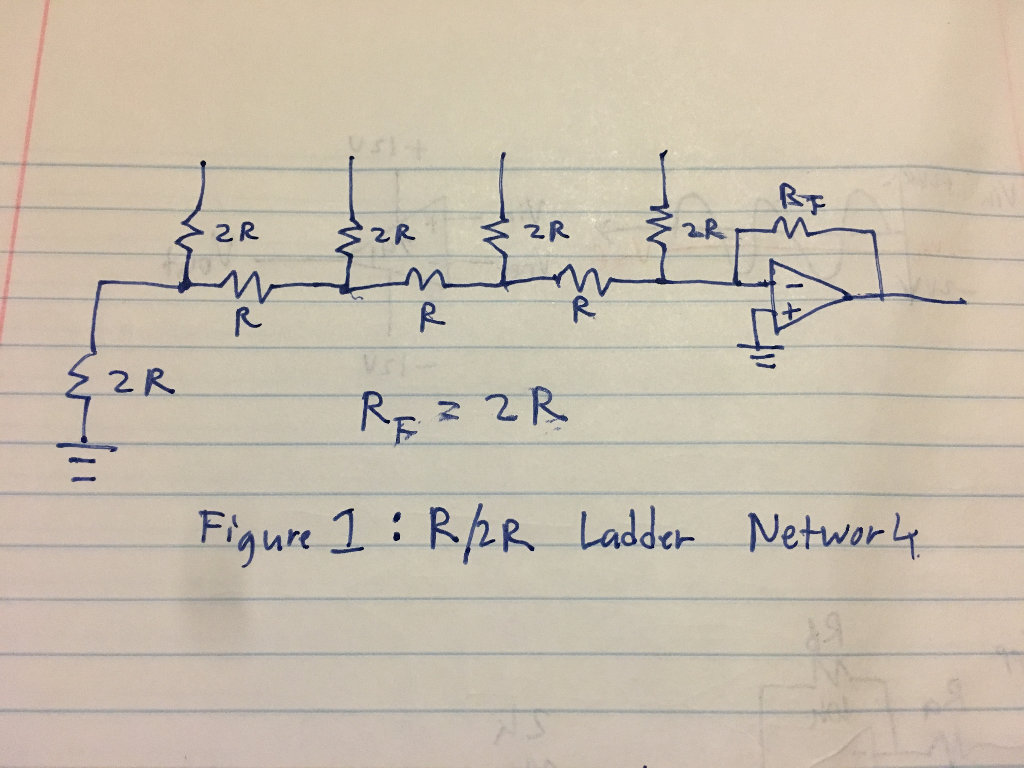 RF
2R 2R 2R 2R
-
R R R
+
2R
RF = 2R
Figure 1 : R/2R Ladder Network